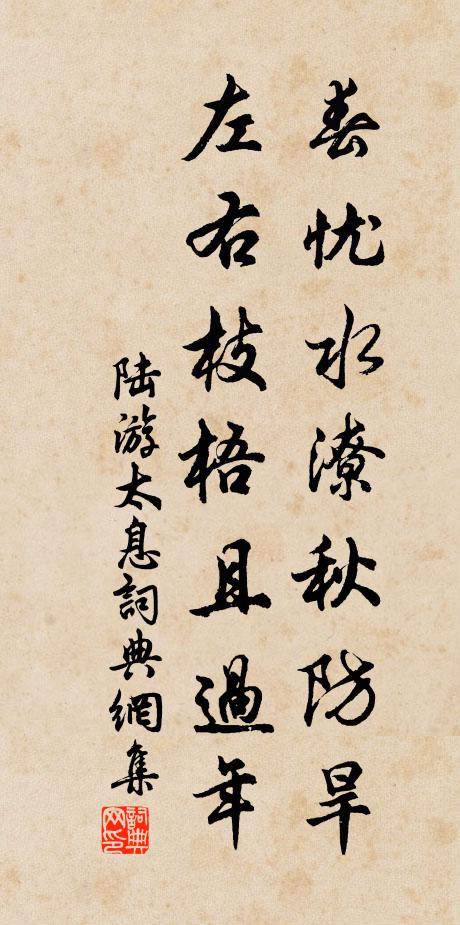 春忧水潦秋防旱
左右枝梧且過年
陆游太息詞典網集
詞典
网印